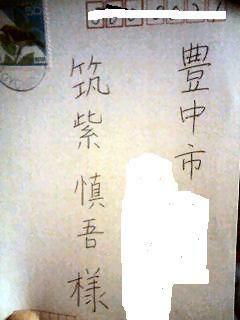 豊中市
筑紫慎吾様
50